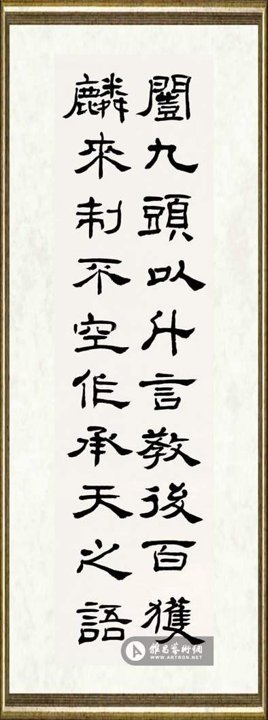 闓九頭以升言教後百獲
麟來制不空作承天之語
雅昌藝術網
WWW.ARTRON.NET